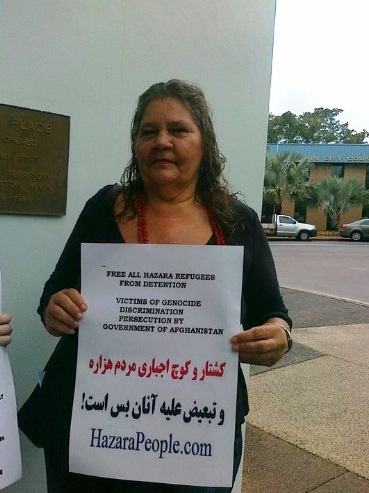 PLACE
OPENED
MINISTER
TERRITORY
CITY COUN
FREE ALL HAZARA REFUGEES
FROM DETENTION
VICTIMS OF GENOCIDE
DISCRIMINATION
PERSECUTION BY
GOVERNMENT OF AFGHANISTAN
کشتار و کوچ اجباری مردم هزاره
و تبعیض علیه آنان بس است!
HazaraPeople.com